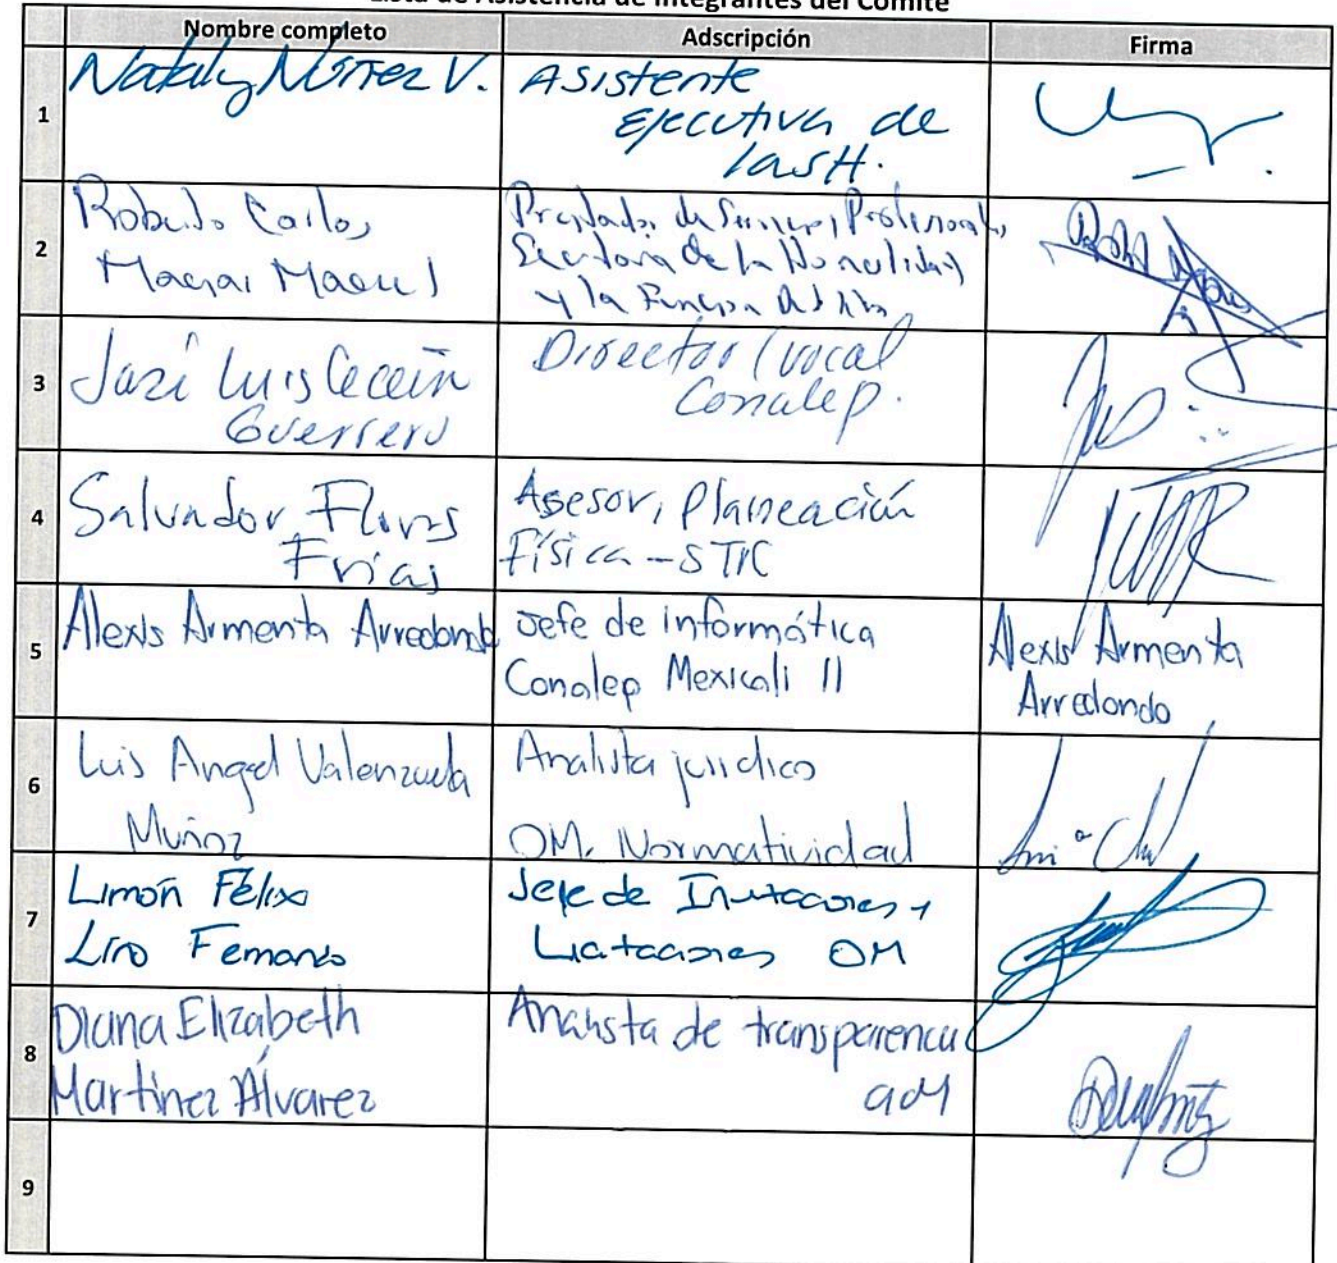 Lista de Asistencia de Integrantes del Comité
Nombre completo Adscripción Firma
1
Nataly Núñez V.
Asistente
Ejecutiva de
2
Roberto Carlos
Prestador de Servicios Profesionales,
Secretaria de la Honestidad
y la Función
3
José Luis
Guerrero
Director / vocal
Conalep.
4
Salvador Flores
Frías
Asesor, Planeación
Física -
5
Alexis Armenta Arredondo
Jefe de informática
Conalep Mexicali II
Alexis Armenta
Arredondo
6
Luis Angel Valenzuela
Muñoz
Analista juridico
OM. Normatividad
7
Limón Félix
Lino Fernando
Jefe de Invitaciones y
Licitaciones OM
8
Diana Elizabeth
Martínez Álvarez
Analista de transparencia
9